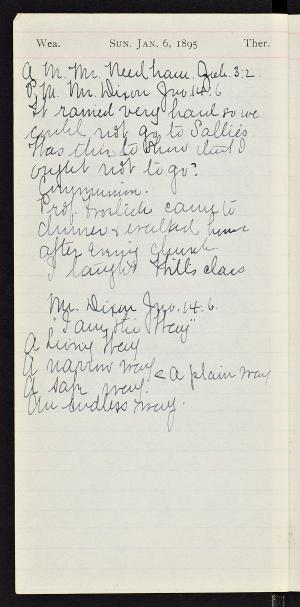 Wea. SUN. JAN. 6, 1895 Ther.
A M Mr. Needham. Zech. 3:2
P. M. Mr. Dixon Jno. 14.6
It rained very hard so we
could not go to Sallies
Was this to show that I
ought not to go?
Communion.
Prof. came to
dinner & walked home
after evening church.
I taught Hills class
Mr. Dixon Jno. 14.6.
"I am the Way"
A Living Way
A narrow way & a plain way
A safe way.
An endless way.